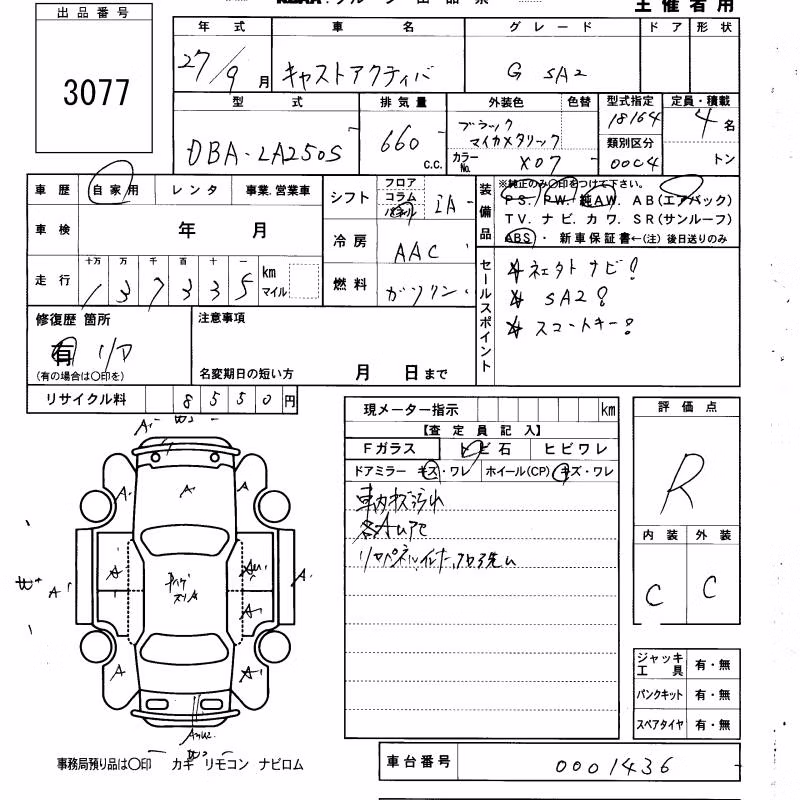 出品番号
3077
主催者用
年式 車名 グレード ドア 形状
27/9月 キャストアクティバ G SA2
型式 排気量 外装色 色替 型式指定 定員・積載
DBA-LA250S 660 c.c. ブラックマイカメタリック 18164 4名
カラーNo. X07 類別区分 00C4 トン
車歴 自家用 レンタ 事業.営業車
シフト フロア コラム パネル IA
車検 年 月
冷房 AAC
走行 十万 万 千 百 十 一 km マイル
137335
燃料 ガソリン
装備品
※純正のみ〇印をつけて下さい。
PS. PW. 純AW. AB(エアバック)
TV. ナビ. カワ. SR(サンルーフ)
ABS ・新車保証書←(注) 後日送りのみ
セールスポイント
SA2!
修復歴 箇所
有 リア
(有の場合は〇印を)
注意事項
名変期日の短い方 月 日まで
リサイクル料 8550円
現メーター指示 km
【査定員記入】
Fガラス トビ石 ヒビワレ
ドアミラー キズ・ワレ ホイール(CP) キズ・ワレ
車内キズ汚れ
評価点
R
内装 外装
C C
ジャッキ工具 有・無
パンクキット 有・無
スペアタイヤ 有・無
事務局預り品は〇印 カギ リモコン ナビロム
車台番号 0001436